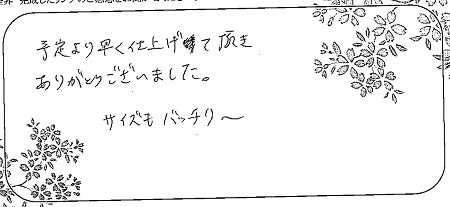 予定より早く仕上げて頂き
ありがとうございました。
サイズもバッチリ〜